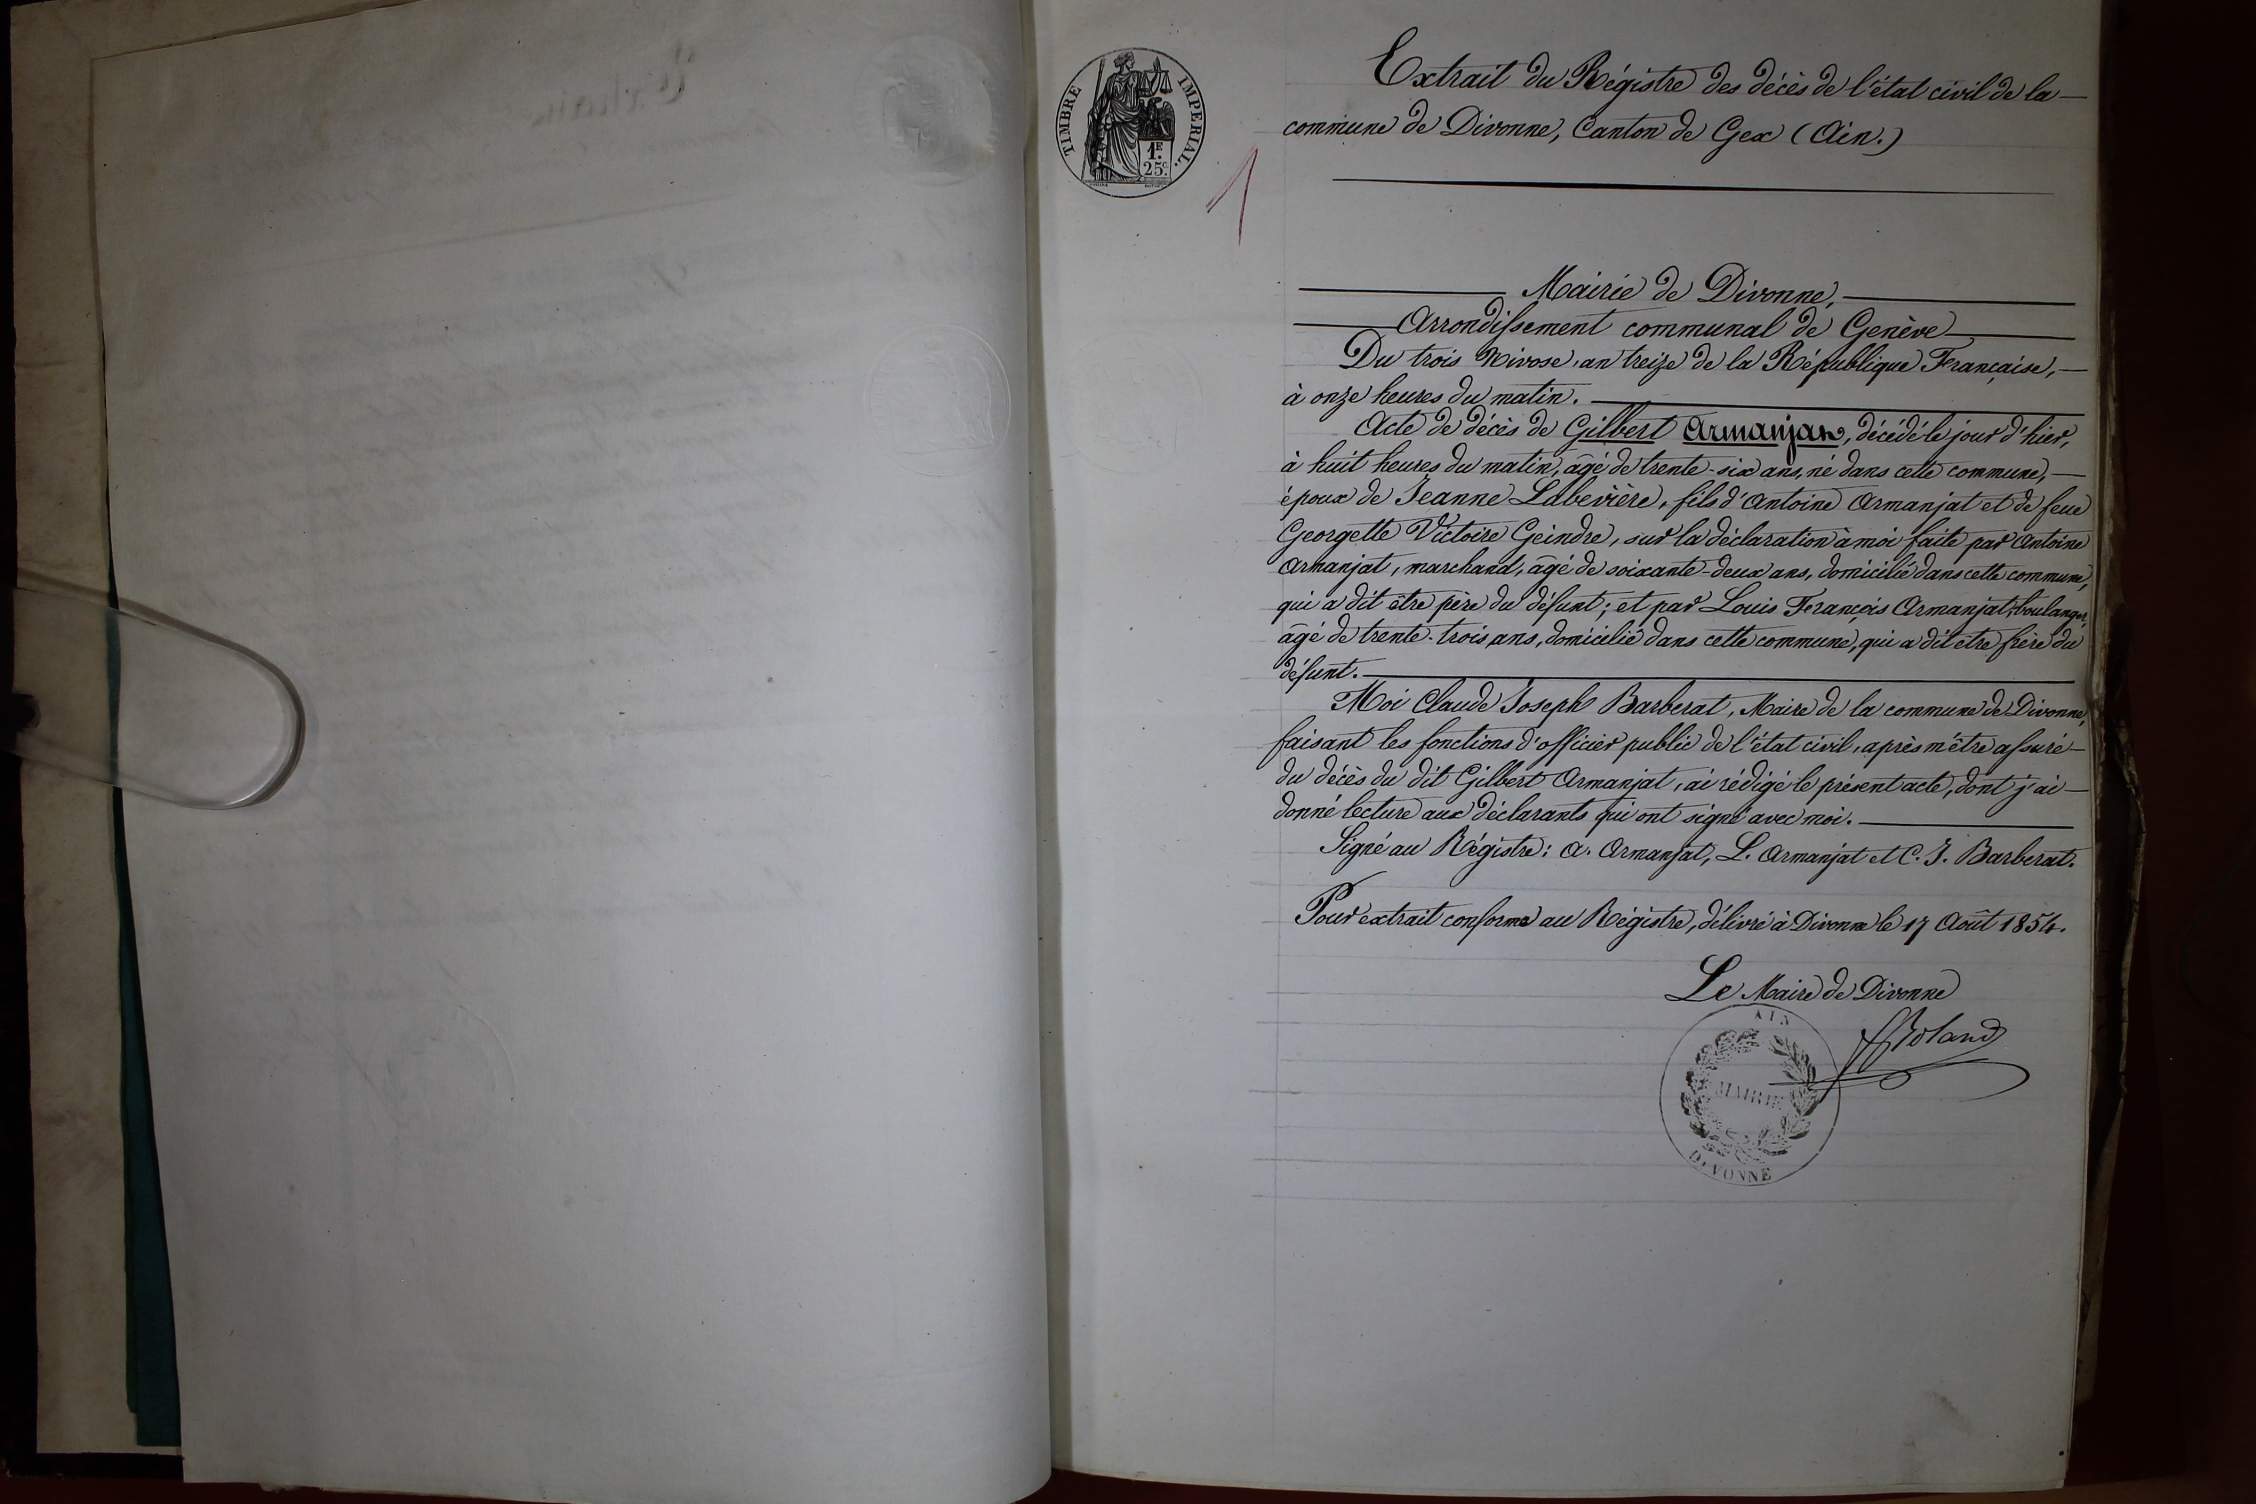 TIMBRE IMPERIAL.
1F.
25c.
1
Extrait du Régistre des décès de l'état civil de la
commune de Divonne, Canton de Gex (Ain.)
Mairie de Divonne,
Arrondissement communal de Genève
Du trois Nivose, an treize de la République Française,
à onze heures du matin.
Acte de décès de Gilbert Armanjat, décédé le jour d'hier,
à huit heures du matin, âgé de trente-six ans, né dans cette commune,
époux de Jeanne Labevière, fils d'Antoine Armanjat et de feue
Georgette Victoire Geindre, sur la déclaration à moi faite par Antoine
Armanjat, marchand, âgé de soixante-deux ans, domicilié dans cette commune,
qui a dit être père du défunt; et par Louis François Armanjat, boulanger,
âgé de trente-trois ans, domicilié dans cette commune, qui a dit etre frère du
défunt.
Moi Claude Joseph Barberat, Maire de la commune de Divonne,
faisant les fonctions d'officier public de l'état civil, après m'être assuré
du décès du dit Gilbert Armanjat, ai rédigé le présent acte, dont j'ai
donné lecture aux déclarants qui ont signé avec moi.
Signé au Régistre: A. Armanjat, L. Armanjat et C. J. Barberat.
Pour extrait conforme au Régistre, délivré à Divonne le 17 Août 1854.
Le Maire de Divonne
Roland
AIN
MAIRIE
DIVONNE